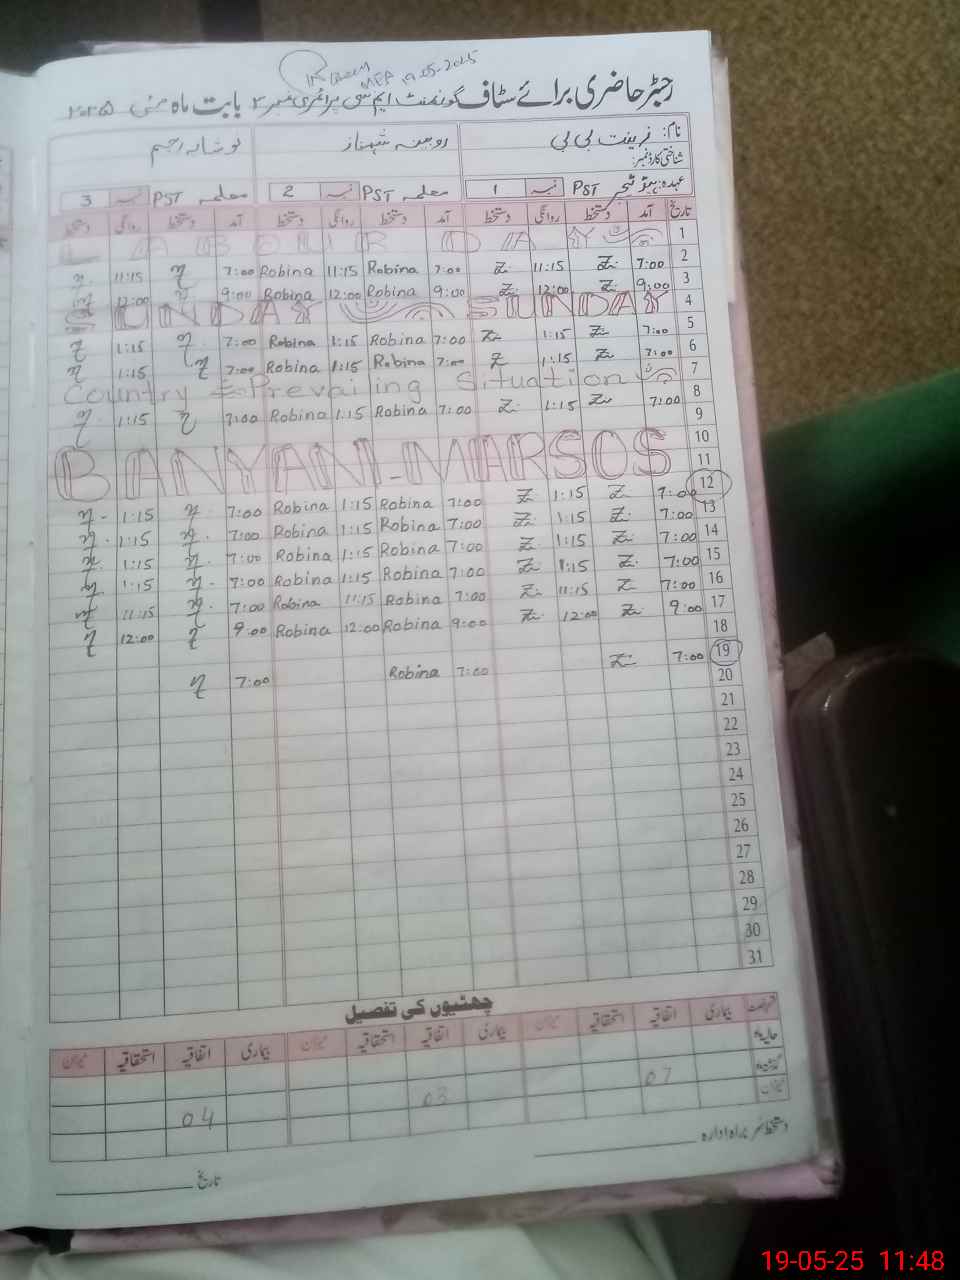 MEA 19-05-2025
رجسٹر حاضری برائے سٹاف گورنمنٹ ایم سی پرائمری نمبر ۲ بابت ماہ مئی ۲۰۲۵
نام: روبینہ شہناز
شناختی کارڈ نمبر:
عہدہ: ہیڈ ٹیچر PST نمبر 1 معلمہ PST نمبر 2 معلمہ PST نمبر 3
تاریخ آمد دستخط روانگی دستخط آمد دستخط روانگی دستخط آمد دستخط روانگی دستخط
1 LABOUR DAY
2 7:00 Z 11:15 Z 7:00 Robina 11:15 Robina 7:00 11:15
3 9:00 Z 12:00 Z 9:00 Robina 12:00 Robina 9:00 12:00
4 SUNDAY SUNDAY
5 7:00 Z 1:15 Z 7:00 Robina 1:15 Robina 7:00 1:15
6 7:00 Z 1:15 Z 7:00 Robina 1:15 Robina 7:00 1:15
7 Country Prevailing Situation
8 7:00 Z 1:15 Z 7:00 Robina 1:15 Robina 7:00 1:15
9
10 BANYANI-MARSOS
11
12 7:00 Z 1:15 Z 7:00 Robina 1:15 Robina 7:00 1:15
13 7:00 Z 1:15 Z 7:00 Robina 1:15 Robina 7:00 1:15
14 7:00 Z 1:15 Z 7:00 Robina 1:15 Robina 7:00 1:15
15 7:00 Z 1:15 Z 7:00 Robina 1:15 Robina 7:00 1:15
16 7:00 Z 11:15 Z 7:00 Robina 11:15 Robina 7:00 11:15
17 9:00 Z 12:00 Z 9:00 Robina 12:00 Robina 9:00 12:00
18
19 7:00 Z 7:00 Robina 7:00
20
21
22
23
24
25
26
27
28
29
30
31
چھٹیوں کی تفصیل
رخصت بیماری اتفاقیہ استحقاقیہ میزان بیماری اتفاقیہ استحقاقیہ میزان بیماری اتفاقیہ استحقاقیہ میزان
حالیہ ماہ
گذشتہ ماہ 07 03 04
میزان
دستخط سربراہ ادارہ
تاریخ
19-05-25 11:48